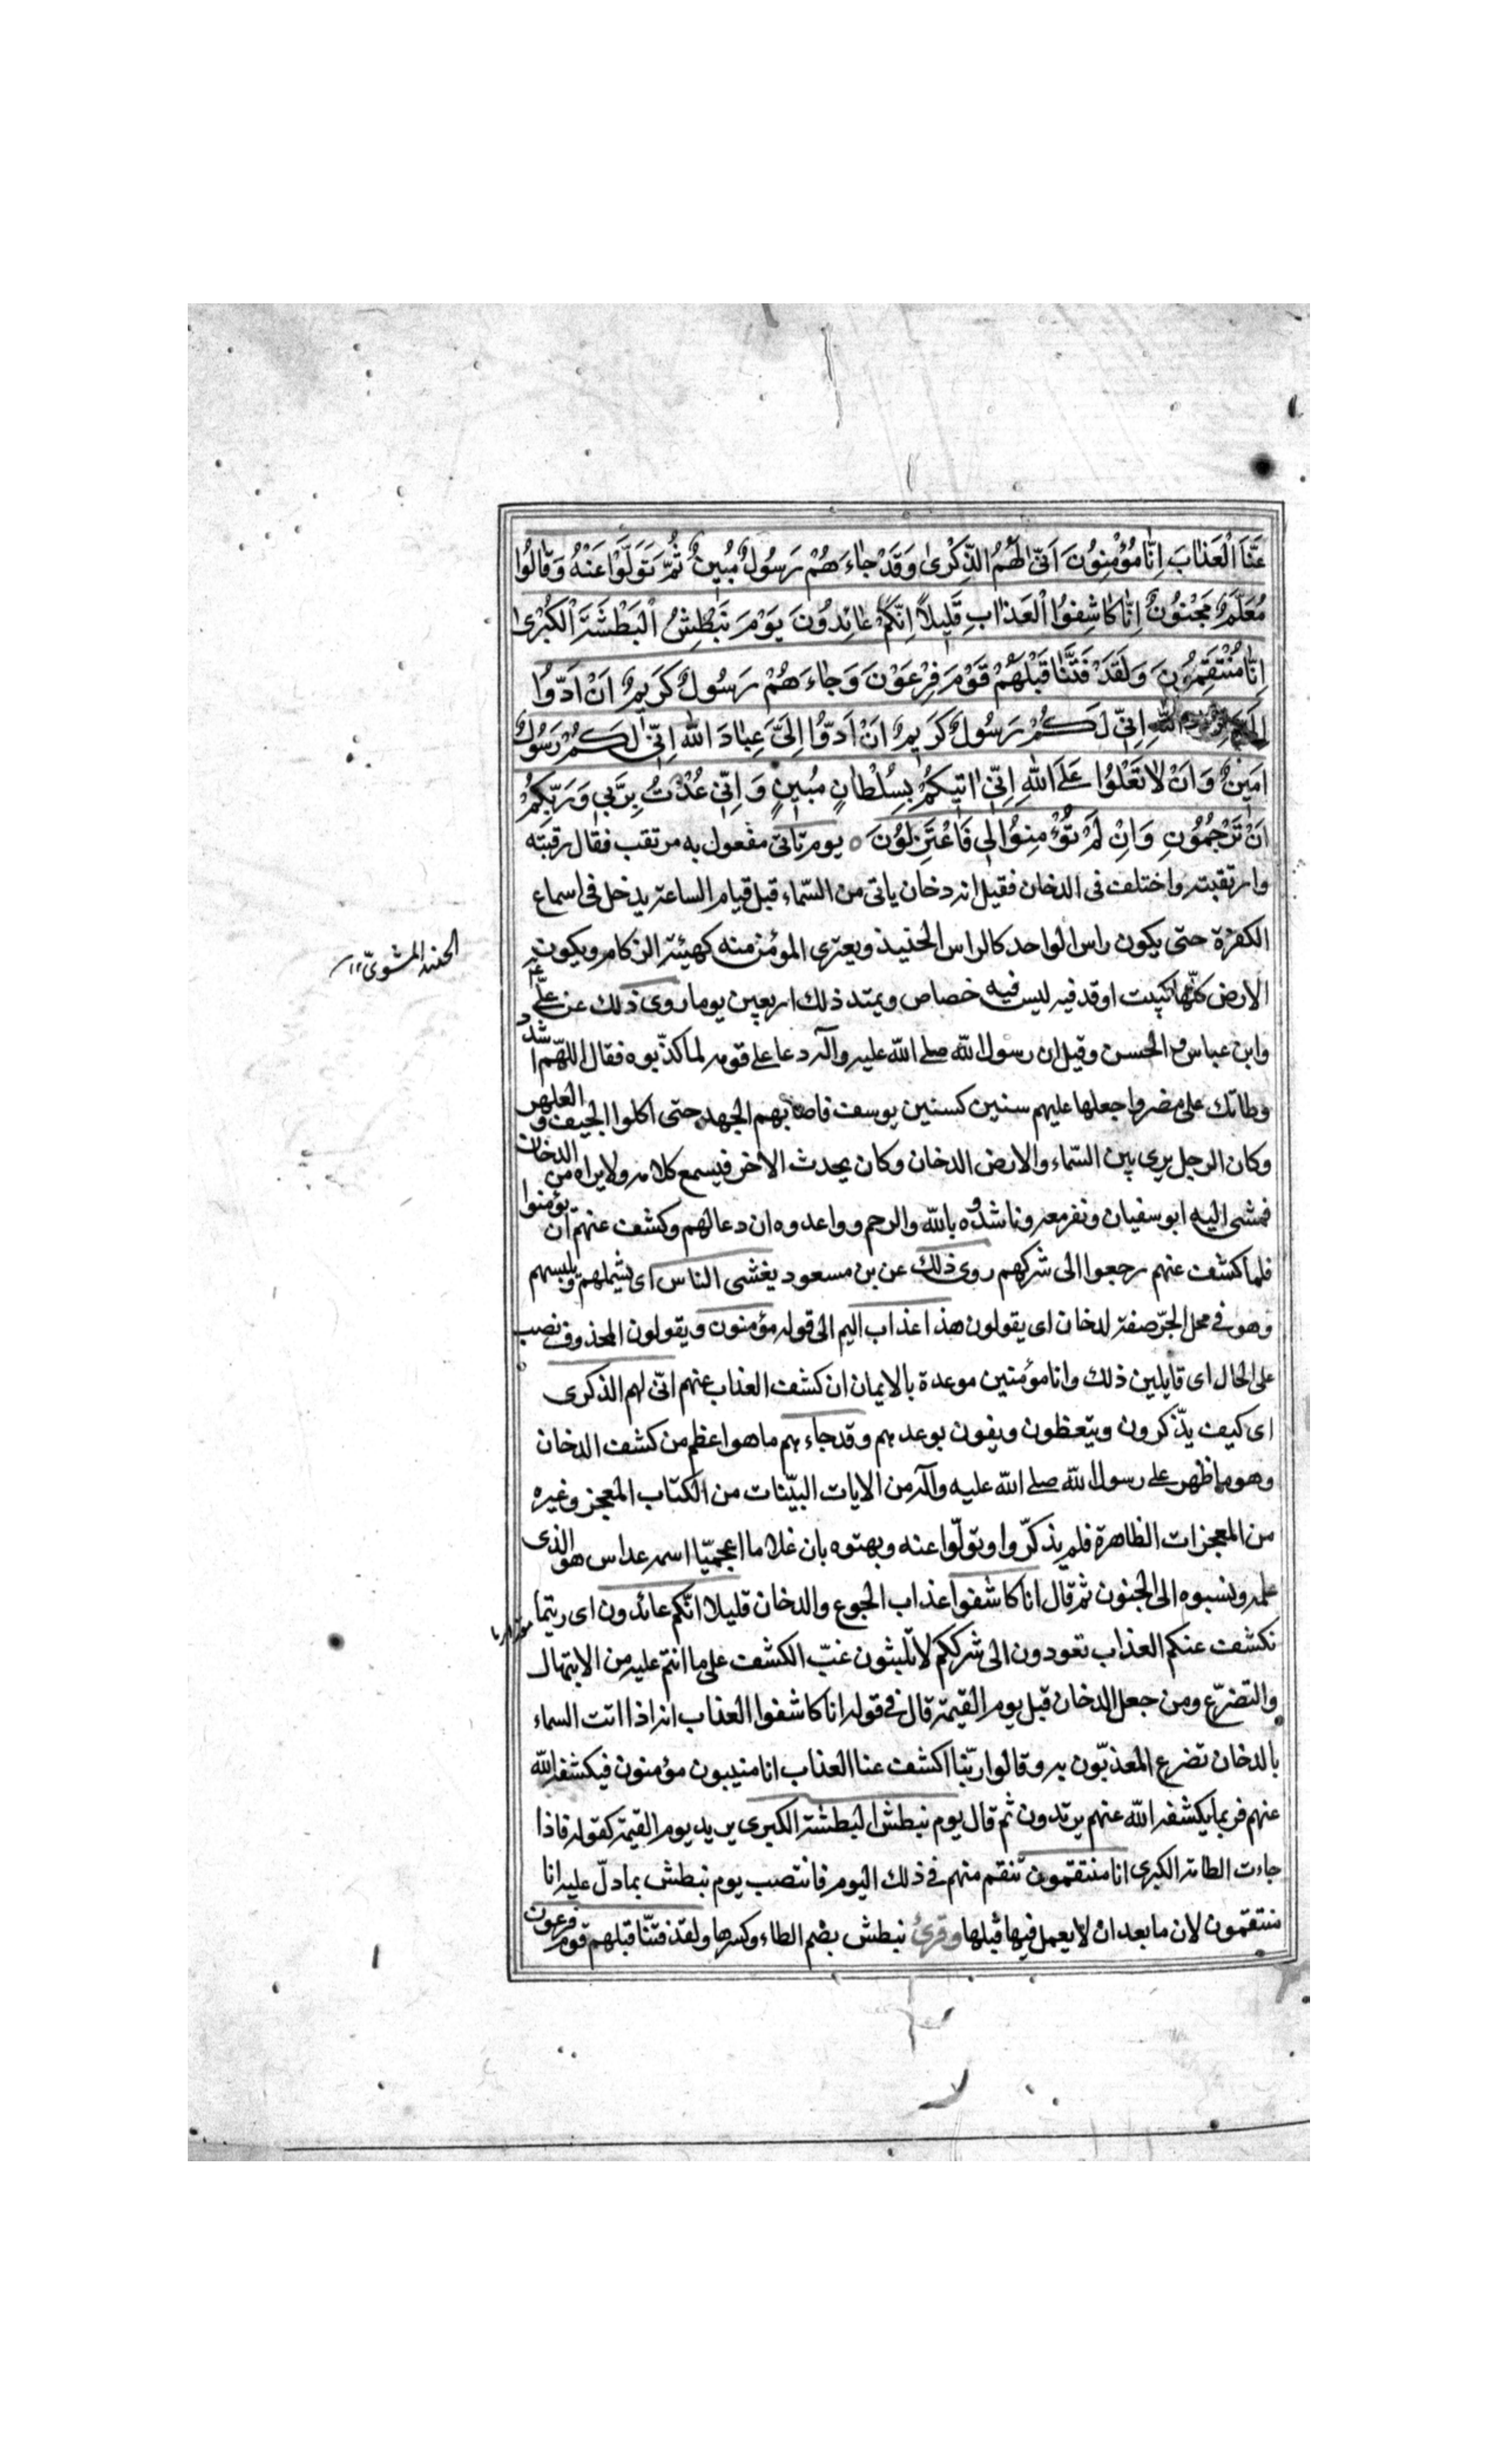 عَنَّا الْعَذٰابَ اِنّٰا مُؤْمِنُونَ اَنّٰى لَهُمُ الذِّكْرىٰ وَقَدْ جٰاءَهُمْ رَسُولٌ مُبِينٌ ثُمَّ تَوَلَّوْا عَنْهُ وَقٰالُوا
مُعَلَّمٌ مَجْنُونٌ اِنّٰا كٰاشِفُوا الْعَذٰابِ قَلِيلًا اِنَّكُمْ عٰائِدُونَ يَوْمَ نَبْطِشُ الْبَطْشَةَ الْكُبْرىٰ
اِنّٰا مُنْتَقِمُونَ وَلَقَدْ فَتَنّٰا قَبْلَهُمْ قَوْمَ فِرْعَوْنَ وَجٰاءَهُمْ رَسُولٌ كَرِيمٌ اَنْ اَدُّوا
اللّٰهِ اِنِّي لَكُمْ رَسُولٌ كَرِيمٌ اَنْ اَدُّوا اِلَيَّ عِبٰادَ اللّٰه اِنِّي لَكُمْ رَسُولٌ
اَمِينٌ وَاَنْ لٰا تَعْلُوا عَلَى اللّٰهِ اِنِّي اٰتِيكُمْ بِسُلْطٰانٍ مُبِينٍ وَاِنِّي عُذْتُ بِرَبِّي وَرَبِّكُمْ
اَنْ تَرْجُمُونِ وَاِنْ لَمْ تُؤْمِنُوا لِي فَاعْتَزِلُونَ ٥ يوم تاتى مفعول به مرتقب فقال رقبته
وارتقبته واختلف فى الدخان فقيل انه دخان ياتى من السّماء قبل قيام الساعة يدخل فى اسماع
الكفرة حتى يكون راس الواحد كالراس الحنيذ ويعترى المؤمن منه كهيئة الزكام ويكون
الحنيذ المشوىّ ١٢
الارض كلّها كبيت اوقد فيه ليس فيه خصاص ويمتد ذلك اربعين يوما روى ذلك عن علىّ
وابن عباس والحسن وقيل ان رسول اللّه صلى اللّه عليه وآله دعا على قومه لما كذّبوه فقال اللّهمّ اشدد
وطاتك على مضر واجعلها عليهم سنين كسنين يوسف فاصابهم الجهد حتى اكلوا الجيف والعلهز
وكان الرجل يرى بين السّماء والارض الدخان وكان يحدث الاخر فيسمع كلامه ولا يراه من الدخان
فمشى اليه ابو سفيان ونفر معه وناشدوه باللّه والرحم وواعدوه ان دعا لهم وكشف عنهم ان يؤمنوا
فلما كشف عنهم رجعوا الى شركهم روى ذلك عن بن مسعود يغشى الناس اى يشملهم ويلبسهم
وهو فى محل الجرّ صفة لدخان اى يقولون هذا عذاب اليم الى قوله مؤمنون ويقولون المحذوف نصب
على الحال اى قايلين ذلك وانا مؤمنين موعدة بالايمان ان كشف العذاب عنهم انّى لهم الذكرى
اى كيف يذّكرون ويتعظون ويفون بوعدهم وقد جاءهم ما هو اعظم من كشف الدخان
وهو ما ظهر على رسول اللّه صلى اللّه عليه وآله من الايات البيّنات من الكتاب المعجز وغيره
من المعجزات الظاهرة فلم يذكّروا وتولّوا عنه وبهتوه بان غلاما اعجميّا اسمه عداس هو الذى
علمه ونسبوه الى الجنون ثم قال انا كاشفوا عذاب الجوع والدخان قليلا انّكم عائدون اى ريثما
نكشف عنكم العذاب تعودون الى شرككم لا تلبثون غبّ الكشف على ما انتم عليه من الابتهال
والتضرّع ومن جعل الدخان قبل يوم القيمة قال فى قوله انا كاشفوا العذاب انه اذا اتت السماء
بالدخان تضرع المعذبّون به وقالوا ربّنا اكشف عنا العذاب انا منيبون مؤمنون فيكشفه اللّه
عنهم فربما يكشفه اللّه عنهم يرتدون ثم قال يوم نبطش البطشة الكبرى يريد يوم القيمة كقوله فاذا
جاءت الطامة الكبرى انا منتقمون ننتقم منهم فى ذلك اليوم فانتصب يوم نبطش بما دلّ عليه انا
منتقمون لان ما بعد ان لا يعمل فيها قبلها وقرئ نبطش بضم الطاء وكسرها ولقد فتنّا قبلهم قوم فرعون